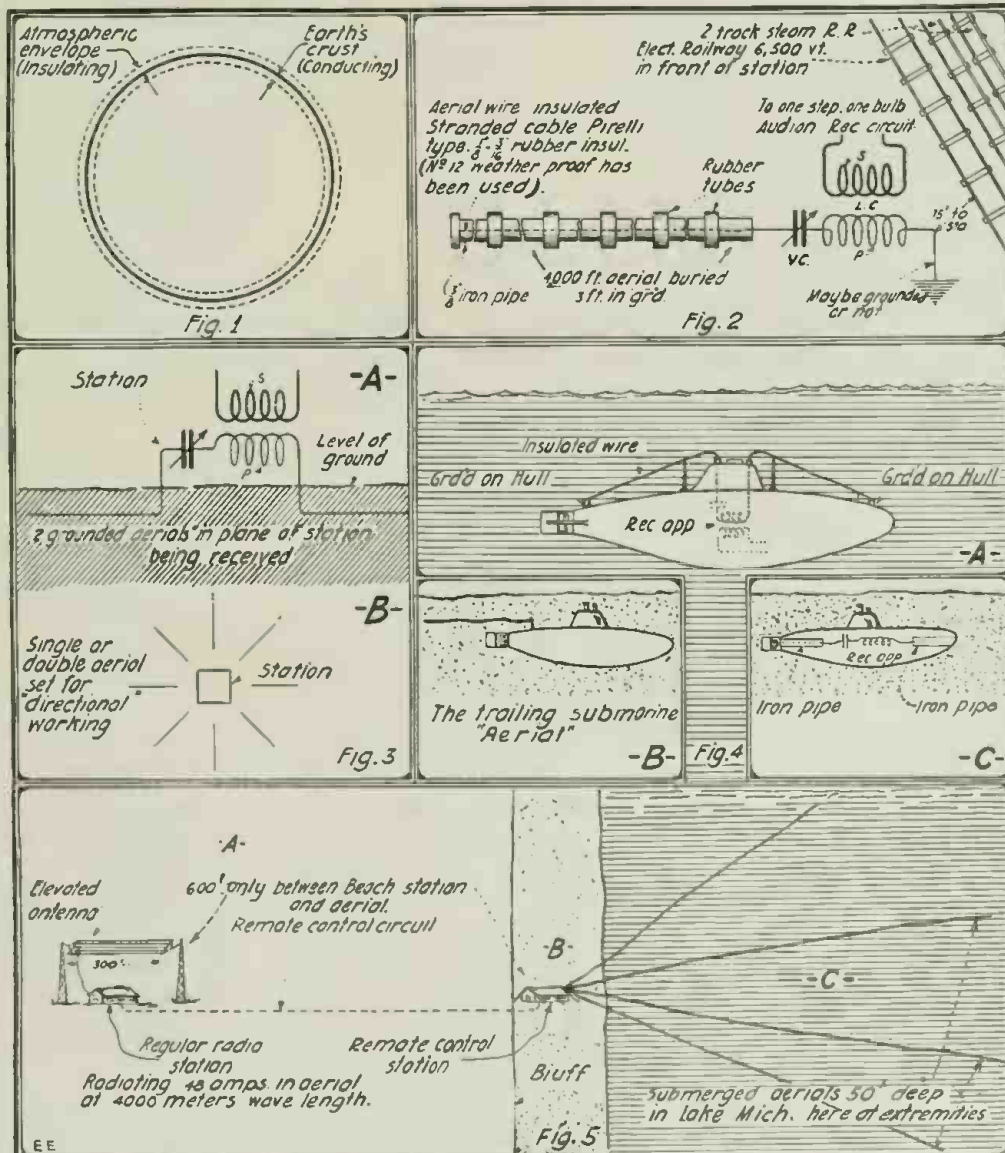 Atmospheric
envelope
(Insulating)
Earth's
crust
(Conducting)
Fig. 1
2 track steam R.R
Elect. Railway 6,500 vt.
in front of station
Aerial wire insulated
Stranded cable Pirelli
type. 5/8 - 3/16 rubber insul.
(Nº 12 weather proof has
been used).
Rubber
tubes
To one step, one bulb
Audion Rec circuit
S
L.C
P
V.C.
15' to
sta
3/8 iron pipe
4000 ft. aerial buried
3 ft. in grd.
Maybe grounded
or not
Fig. 2
Station
-A-
S
P
Level of
ground
2 grounded aerials in plane of station
being received
-B-
Single or
double aerial
set for
"directional"
working
Station
Fig. 3
Insulated wire
Grd'd on Hull
Grd'd on Hull
Rec app
-A-
The trailing submarine
"Aerial"
-B-
Fig. 4
Rec app
Iron pipe
Iron pipe
-C-
-A-
Elevated
antenna
600' only between Beach station
and aerial.
Remote control circuit
300'
Regular radio
station
Remote control
station
Radiating 48 amps. in aerial
at 4000 meters wave length.
-B-
Bluff
-C-
Submerged aerials 50' deep
in Lake Mich. here at extremities
Fig. 5
EE